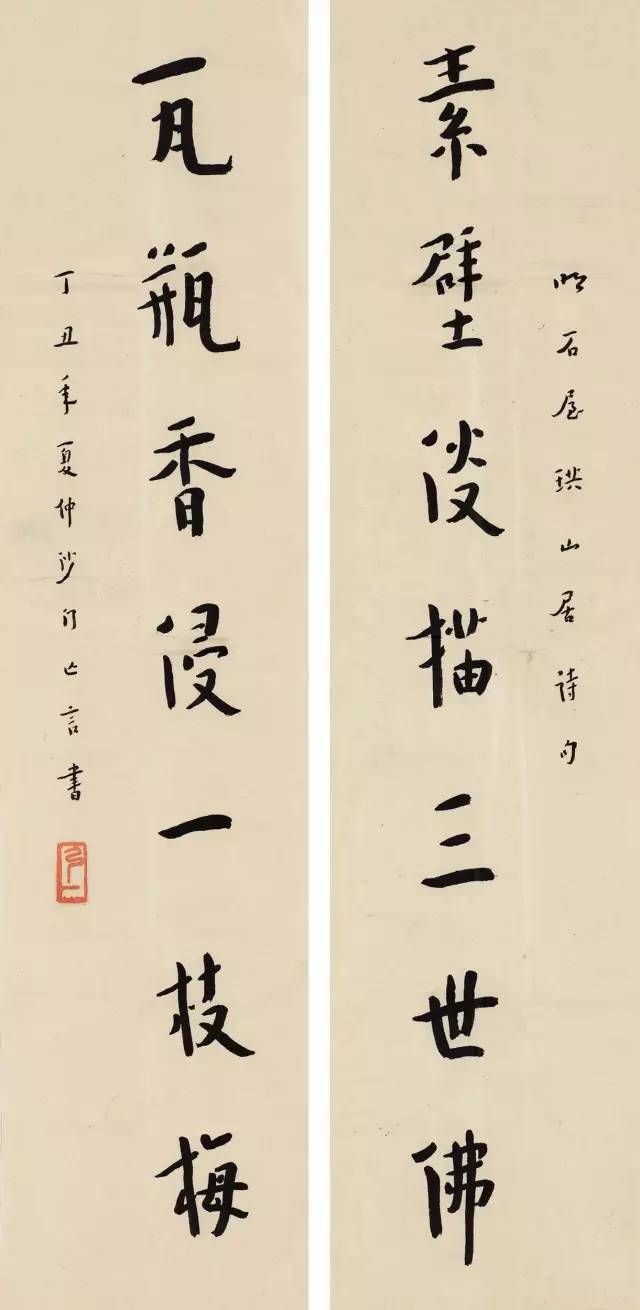 明石屋珙山居詩句
素壁淡描三世佛
瓦瓶香浸一枝梅
丁丑年夏仲沙門亡言書
弘一